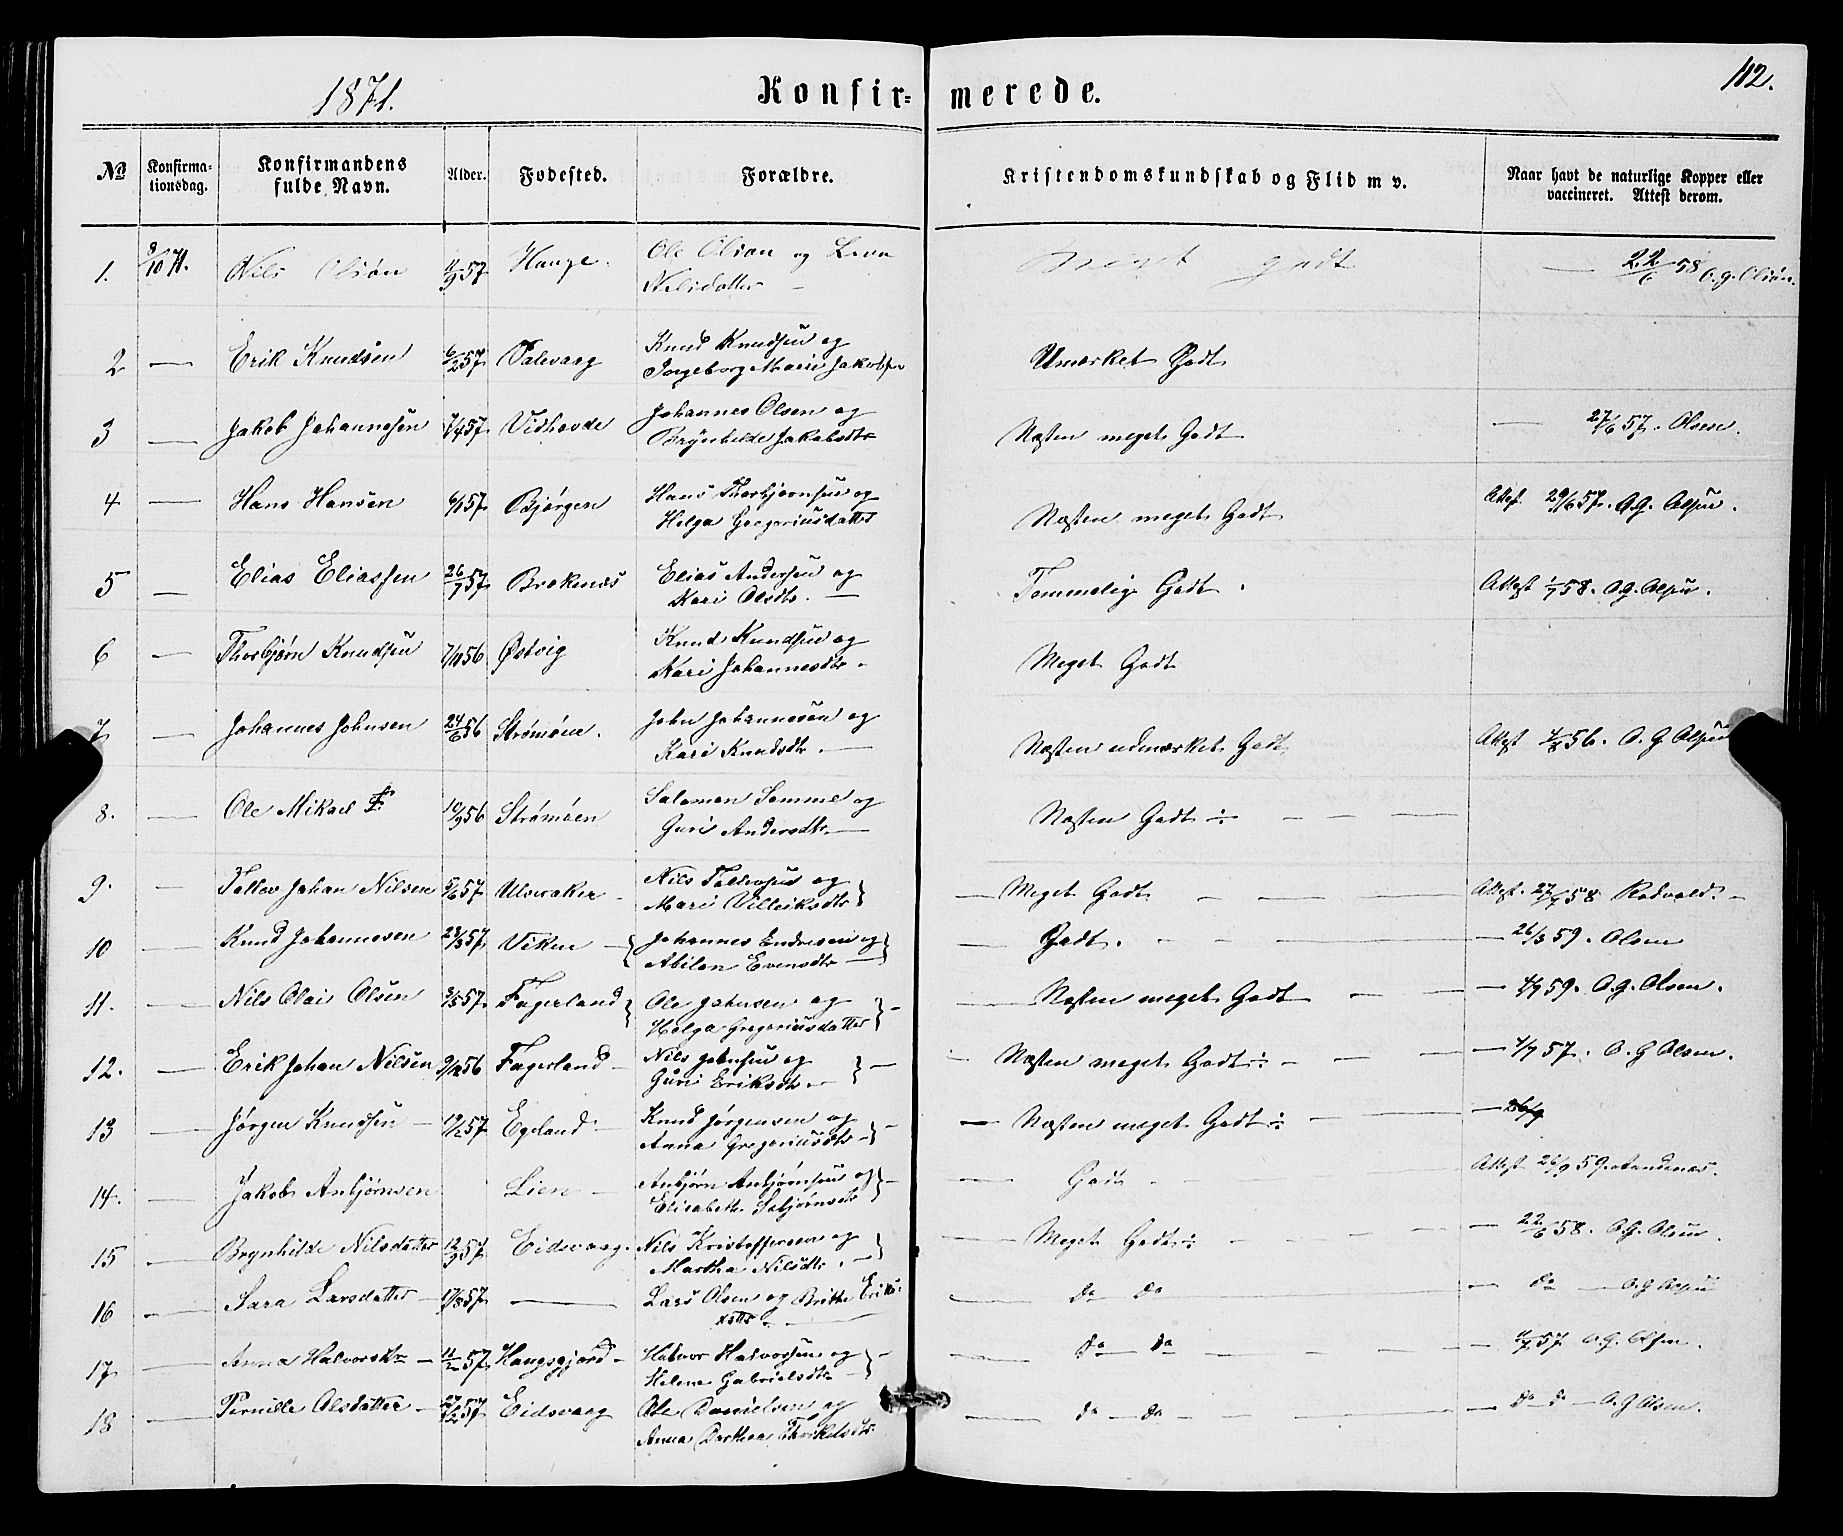 1871.
Konfir= merede.
112.
No
Konfirma-
tionsdag.
Konfirmandens
fulde Navn.
Alder.
Fødested.
Forældre.
Kristendomskundskab og Flid m v.
Naar havt de naturlige Kopper eller
vaccineret. Attest derom.
1. 8/10 71. Nils Olsøn 57 Hauge. Ole Olson og
Nelsdatter — Meget godt — 22/6 58 O. g. Olsøn.
2 — Erik Knudsen 6/2 57 Valevaag Knud Knudsen og
Ingeborg Marie Jakobsen Umærket Godt
3 — Jakob Johannesen 7/4 57 Vidhovde Johannes Olsen og
Brynhilde Jakobsdtr Næsten meget Godt — 27/6 57. Olsen.
4 — Hans Hansen 6/1 57 Bjørgen Hans Thorbjørnsen og
Helga Gregoriusdatter Næsten meget Godt Attest 29/6 57. O.G. Olsen.
5 — Elias Eliassen 26/7 57 Brekenæs Elias Andersen og
Kari Olsdtr. — Temmelig Godt. Attest 1/7 58. O.G. Olsen.
6 — Thorbjørn Knudsen 7/11 56 Østvig Knud Knudsen og
Kari Johannesdtr. Meget Godt
7 — Johannes Johnsen 24/6 56 Strømøen. John Johannesen og
Kari Knudsdtr. — Næsten udmærket Godt Attest 56. O. G Olsen
8. — Ole Mikael 10/9 56 Strømøen Salomon Somme og
Guri Andersdtr — Næsten Godt ÷ — — —
9. — Tollev Johan Nilsen 5/6 57 Ulveraker Nils Tollevsen og
Mari Villeiksdtr — Meget Godt — — — — Attest. 27/7 58 —
10 — Knud Johannesen 23/3 57 Viken — Johannes Endresen og
Abilon Evensdtr — — Godt. — — — — 26/3 59. Olsen
11. — Nils Olai Olsen 3/5 57. Fagerland Ole Johnsen og
Helga Gregoriusdatter — — Næsten meget Godt — — — 59. O.G. Olsen.
12. — Erik Johan Nilsen 9/12 56 Fagerland — Nils Johnsen og
Guri Eriksdtr. — — Næsten meget Godt ÷ — — — — 1/7 57. O. G Olsen.
13 — Jørgen Knudsen — 19/2 57 Egeland — Knud Jørgensen og
Anna Gregoriusdtr — — Næsten meget Godt ÷ — — — 26/9
14. — Jakob Anbjørnsen Lien — Anbjørn Anbjørnsen og
Elisabeth — — Godt. — Attest 26/9 59.
15 — Brynhilde Nilsdatter 12/9 57 Eidsvaag. Nils Kristoffersen og
Martha Nilsdtr. — — Meget Godt ÷ — — — — 22/6 58. O.G. Olsen.
16 — Sara Larsdatter — 17/8 57 — Lars Olsen og Brithe Eriks-
datter — — do do — do — O.G Olsen
17 — Anna Halvorsdtr — 11/2 57 Haugsgjærd — Halvor Halvorsen og
Helene Gabrielsdtr — — do do — — — — 57 O.G. Olsen.
18 — Pernille Olsdatter — 27/12 57 Eidsvaag Ole Danielsen og
Anna Dorthea Thorkelsdtr. — do — do — — — — — do — d — O.G Olsen.